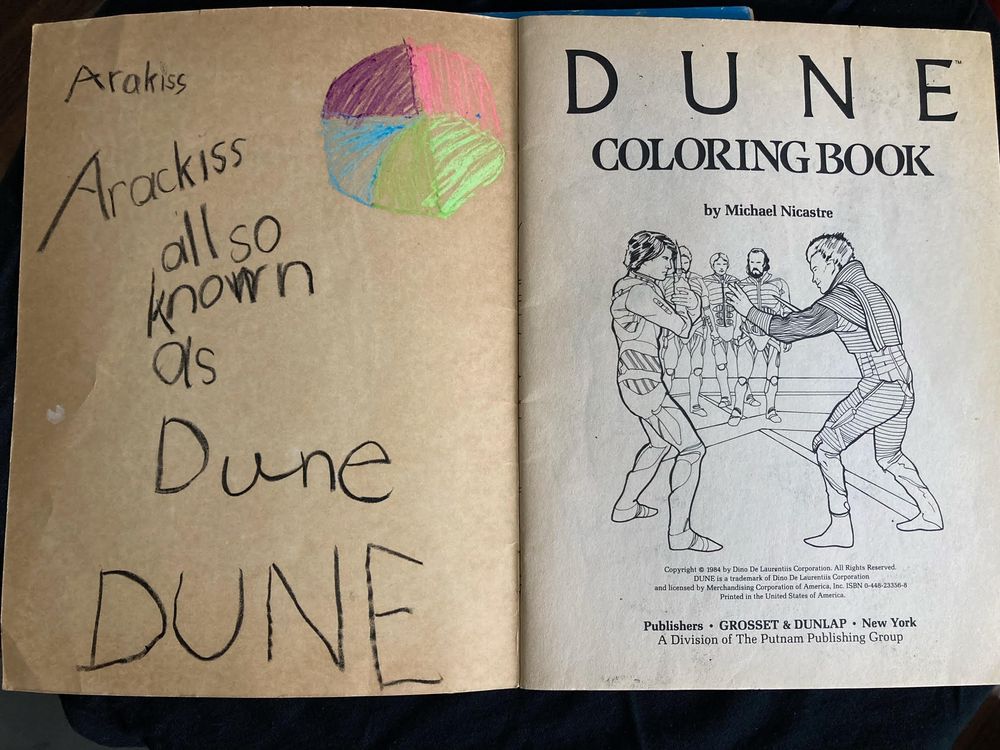 Arakiss
Arackiss
allso
known
as
Dune
DUNE
DUNE™
COLORING BOOK
by Michael Nicastre
Copyright © 1984 by Dino De Laurentiis Corporation. All Rights Reserved.
DUNE is a trademark of Dino De Laurentiis Corporation
and licensed by Merchandising Corporation of America, Inc. ISBN 0-448-23356-8
Printed in the United States of America.
Publishers • GROSSET & DUNLAP • New York
A Division of The Putnam Publishing Group